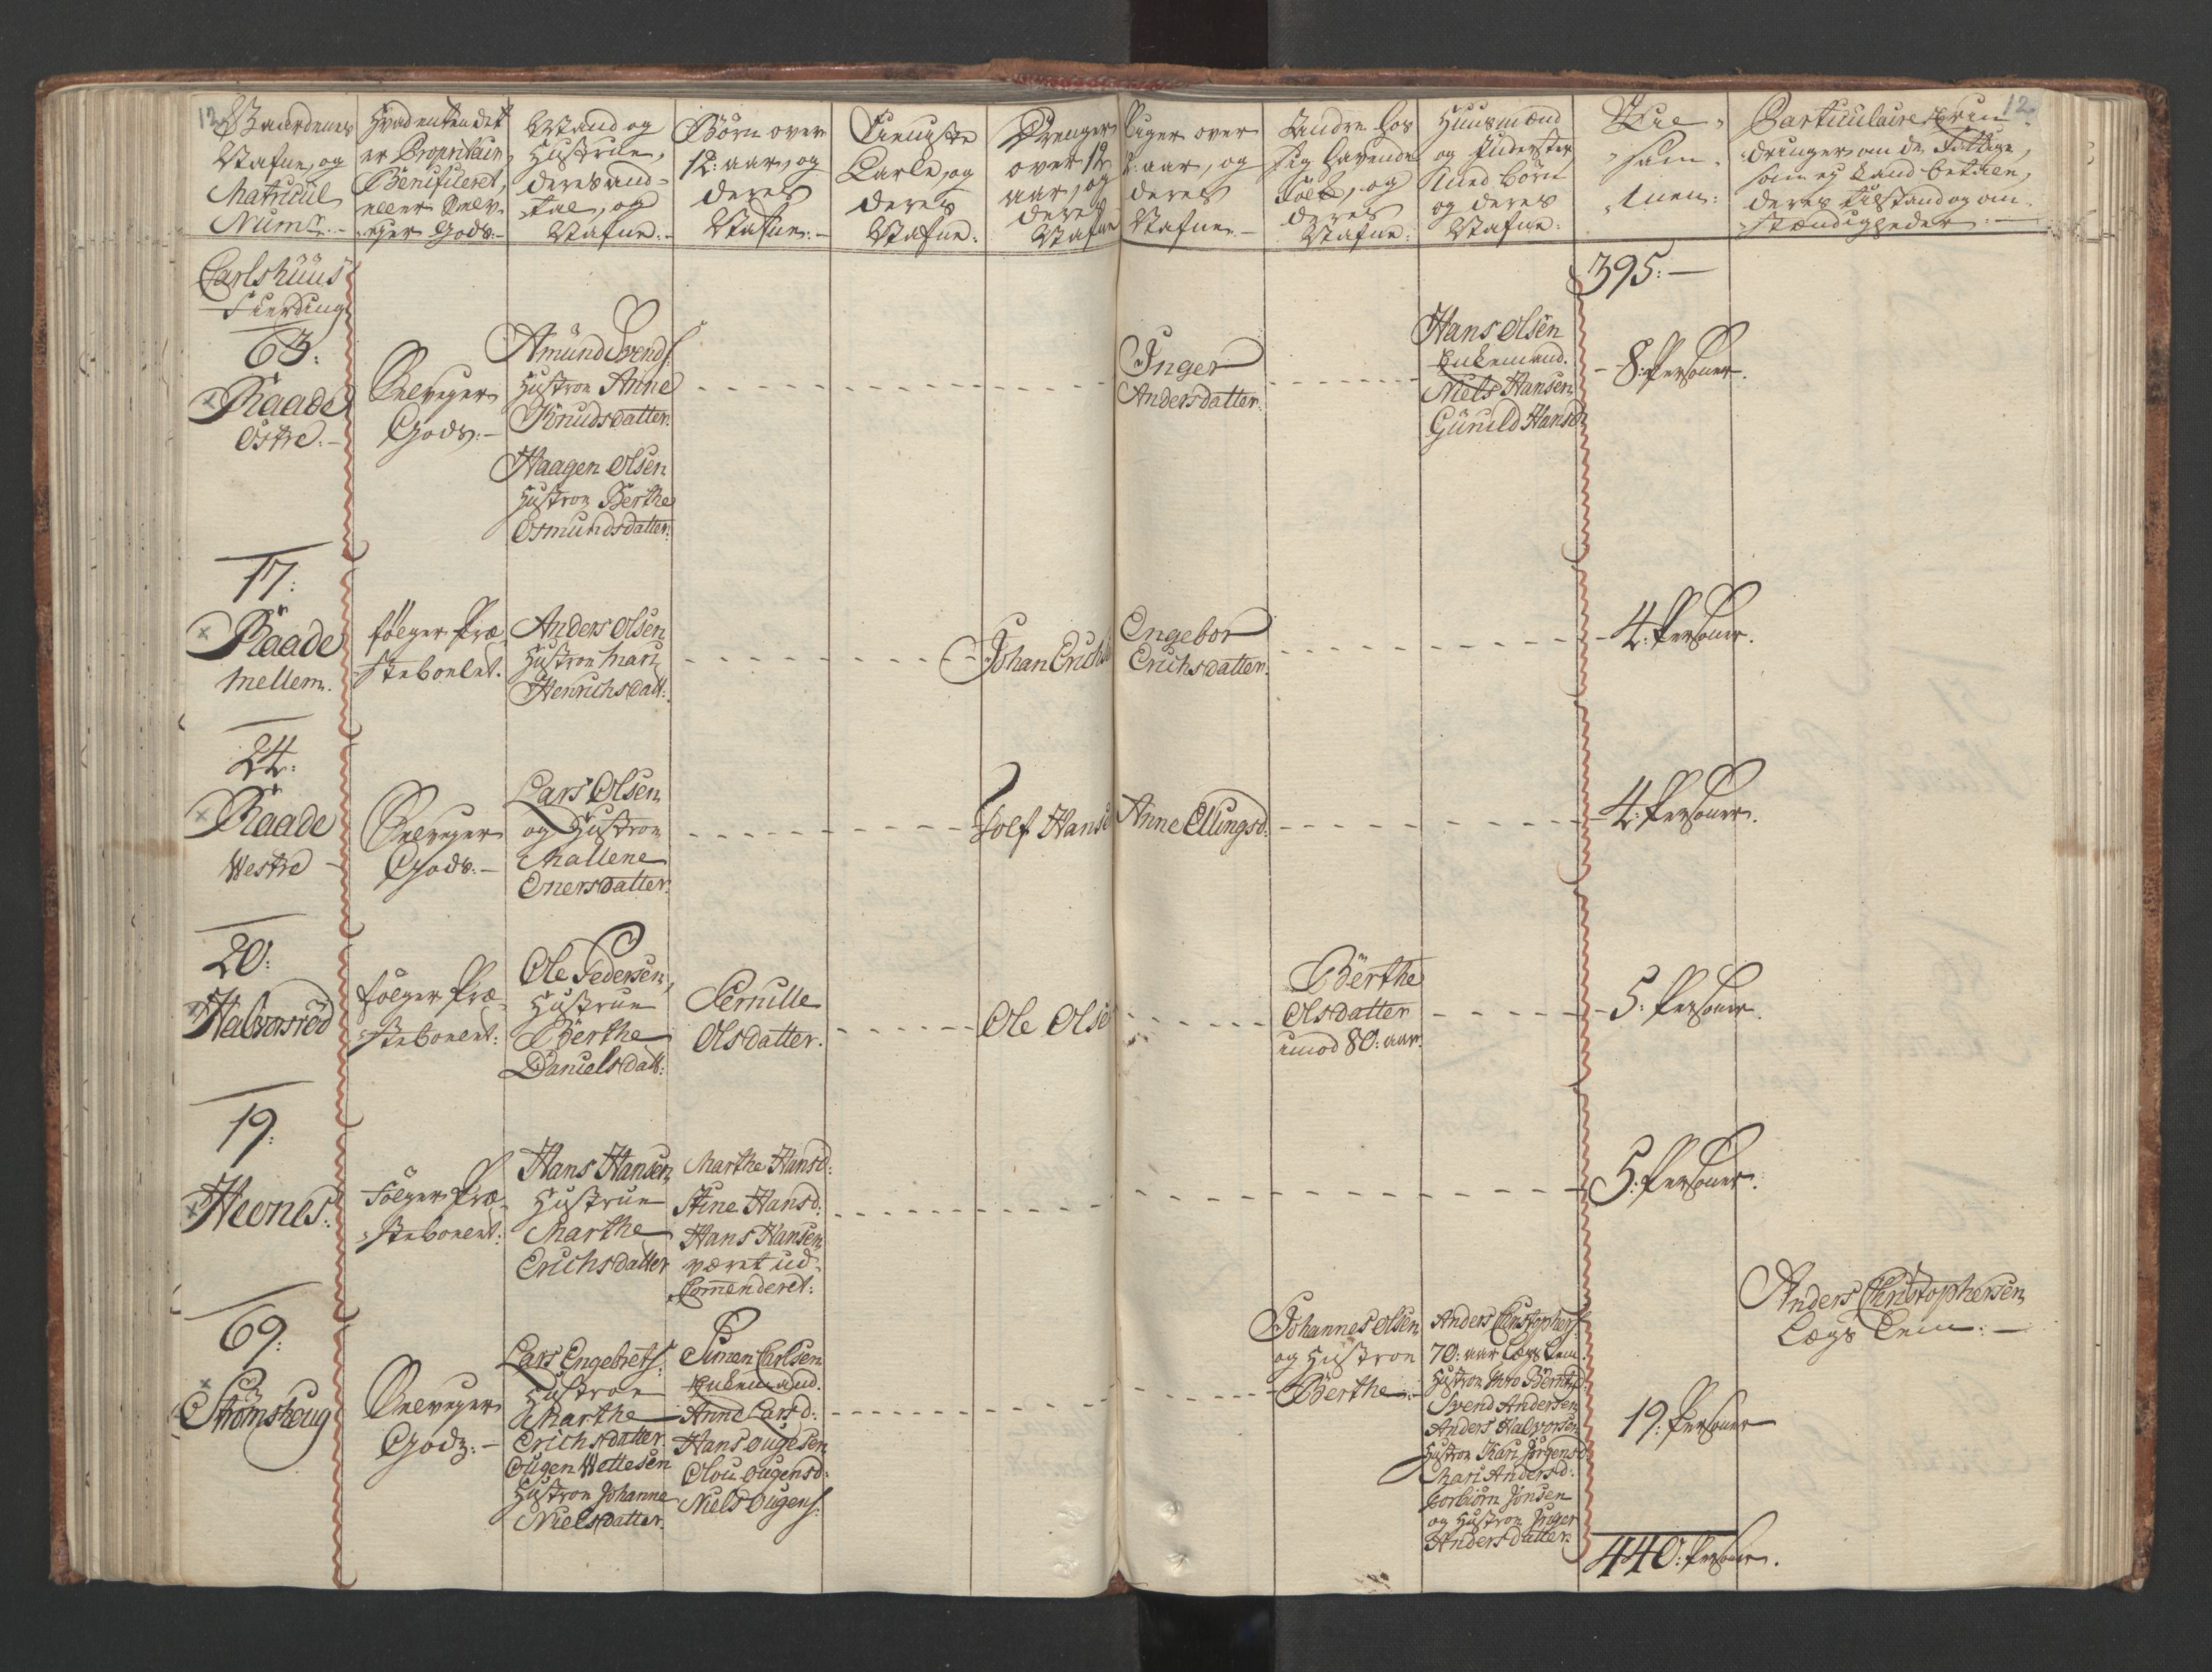 12
Gaardenes
Nafne, og
Matricul
Num:
Hvad enten det
er Proprietair,
Benificeret,
eller Selv-
eyer Gods:
Mand og
Hustrue,
deres and-
tal, og
Nafne:
Børn over
12: aar, og
deres
Nafne:
Tieniste
Karle, og
deres
Nafne:
Drenger
over 12
aar, og
deres
Nafne
Piger over
12: aar, og
deres
Nafne
Andre hos
sig havende
Folk, og
deres
Nafne:
Huusmænd
og Inderster,
med børn
og deres
Nafne:
Sum-
men:
Particulaire Erin-
dringer om de Fattige,
som ej kand betale,
deres tilstand og om-
stændigheder:
12
Carlshuus
Fierding
395:
63:
Raade
Østre.
Selveyer
Gods:
Amund Svends:
Hustroe Anne
Knudsdatter.
Haagen Olsen
Hustroe Berthe
Osmundsdatter:
Inger
Andersdatter:
Hans Olsen
Enkemand.
Niels Hansen,
Gunild Hansd
8: Persohner.
17:
Raade
Mellem.
følger Præ-
steboelet.
Anders Olsen
Hustroe Mari
Henrichsdatt:
Johan Erichs
Engebor
Erichsdatter.
4: Persohner.
24:
Raade
Westre
Selveyer
Gods:
Lars Olsen
og Hustroe
Mallene
Enersdatter:
Tolf Hans
Anne Ellingsd:
4: Persohner.
20:
Halvorsrød
følger Præ-
steboelet:
Ole Pedersen,
Hustrue
Berthe
Danielsdatt:
Pernille
Olsdatter.
Ole Olse
Berthe
Olsdatter
imod 80: aar.
5: Persohner.
19:
Heones:
Følger Præ-
steboelet:
Hans Hansen
Hustrue
Marthe
Erichsdatter
Marthe Hansd:
Stine Hansd:
Hans Hansen
været ud-
Commenderet:
5: Persohner.
69:
Strømshoug
Selveyer
Godz:
Lars Engebrets:
Hustroe
Marthe
Erichsdatter.
Ougen Wettesen
Hustroe Johanne
Nielsdatter.
Simen Carlsen
Enkemand.
Anne Larsd:
Hans Ougesen
Olou Ougensd:
Niels Ougens:
Johannes Olsen
og Hustroe
Berthe
Anders Christophers:
70: aar Lægs Lem.
Hustroe
Svend Andersen
Anders Halvorsen
Hustroe Kari Jørgensd:
Mari Andersd:
Torbiørn Jonsen
og Hustroe Inger
Andersdatter.
19: Persohner
Anders Christophersen
Lægs Lem:
440: Persohner.